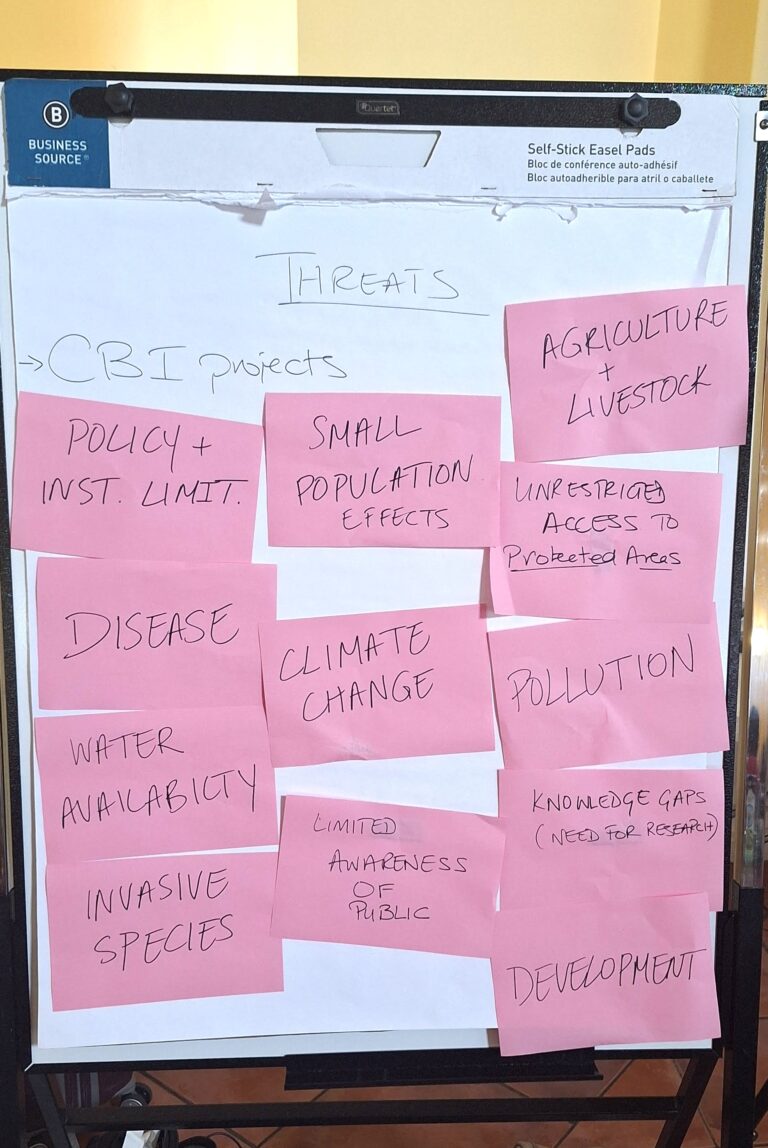 B
BUSINESS
SOURCE®
Quartet
Self-Stick Easel Pads
Bloc de conférence auto-adhésif
Bloc autoadherible para atril o caballete
THREATS
→ CBI projects
POLICY +
INST. LIMIT.
DISEASE
WATER
AVAILABILTY
INVASIVE
SPECIES
SMALL
POPULATION
EFFECTS
CLIMATE
CHANGE
LIMITED
AWARENESS
OF
PUBLIC
AGRICULTURE
+
LIVESTOCK
UNRESTRICTED
ACCESS TO
Protected Areas
POLLUTION
KNOWLEDGE GAPS
(NEED FOR RESEARCH)
DEVELOPMENT